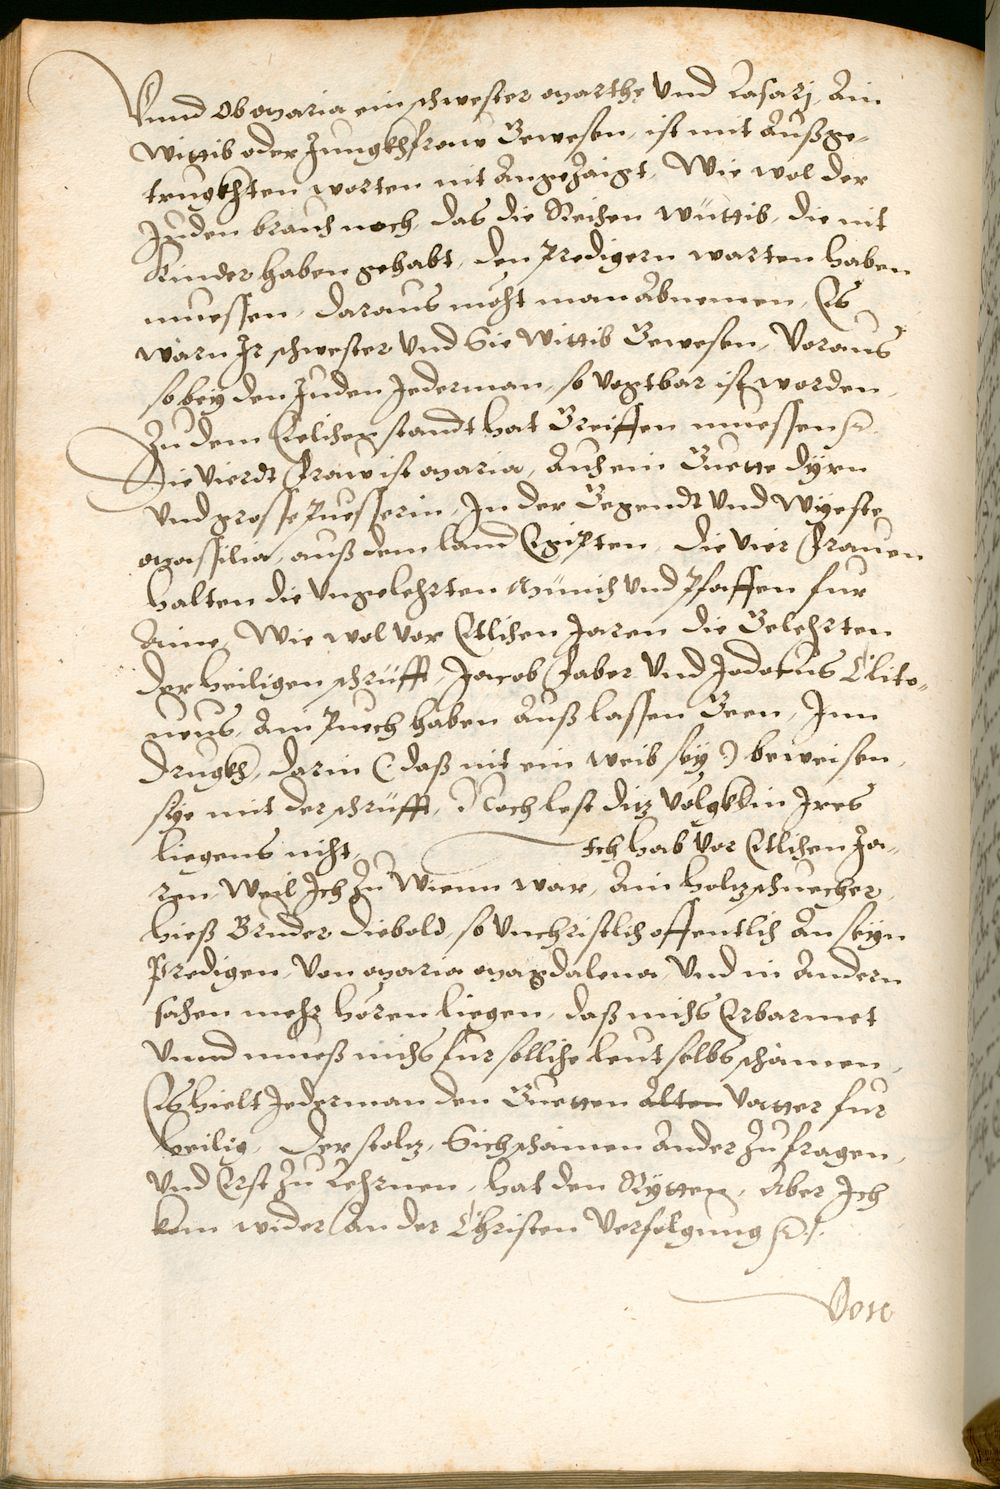 Vnnd ob Maria ein schwester Marthe vnd Lasarj, Ain
wittib oder Jungkhfraw Gewesen, ist mit Außge-
trugkhten worten nit Angezaigt, Wie wol der
Juden brauch noch, das die Reichen wüttib, die nit
Kinder haben gehabt, den predigern warten haben
muessen, daraus möcht man Abnemen, Es
wärn Jr schwester vnd Sie Wittib Gewesen, Voraus
so bey den Juden Jederman, so vogtbar ist worden,
Zu dem Eelichen standt hat Greiffen muessen
Die vierdt Fraw ist Maria, Auch ein Guette dyrn
vnd grosse puesserin, In der Gegendt vnd Wyeste
Massilia, auß dem land Egipten, die vier Frauen
halten die vngelehrten Münich vnd Pfaffen fur
Aine, Wie wol vor Etlichen Jaren die Gelehrten
der heiligen schrüfft, Jacob Faber vnd Jodocus Clito-
neus, Ain Puech haben Auß lassen Geen, Inn
Drugkh, darin (daß nit ein weib sey) beweisen
sye mit der schrüfft, Noch lest ditz völgkhlin Jres
liegens nicht, Ich hab vor Etlichen Ja-
ren, Weil Ich zu Wienn war, Ain holtzschuecher,
hieß Bruder Diebold, so vnchristlich offentlich An seyn
Predigen, Von Maria Magdalena, vnd in Andern
sachen mehr hören liegen, daß michs Erbarmet
Vnnd mueß michs fur solliche leut selbs schämen,
Es hielt Jederman den Guetten Alten Vatter fur
heilig, Der stoltz, Sich schämen Ander zu fragen,
vnd Erst zu Lehrnen, hat den Rytten, Aber Ich
kom wider An der Christen Verfolgung
Vom